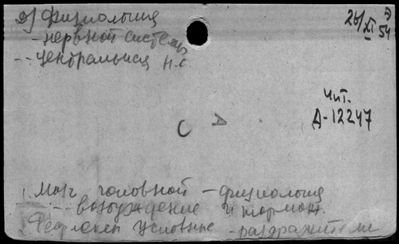 э) Физиология
- нервной системы
-- центральная н.с
25/XI 54
Чит.
Д-12247
Мозг головной - физиология
-- возбуждение и тормож.
Рефлексы условные - раздражители